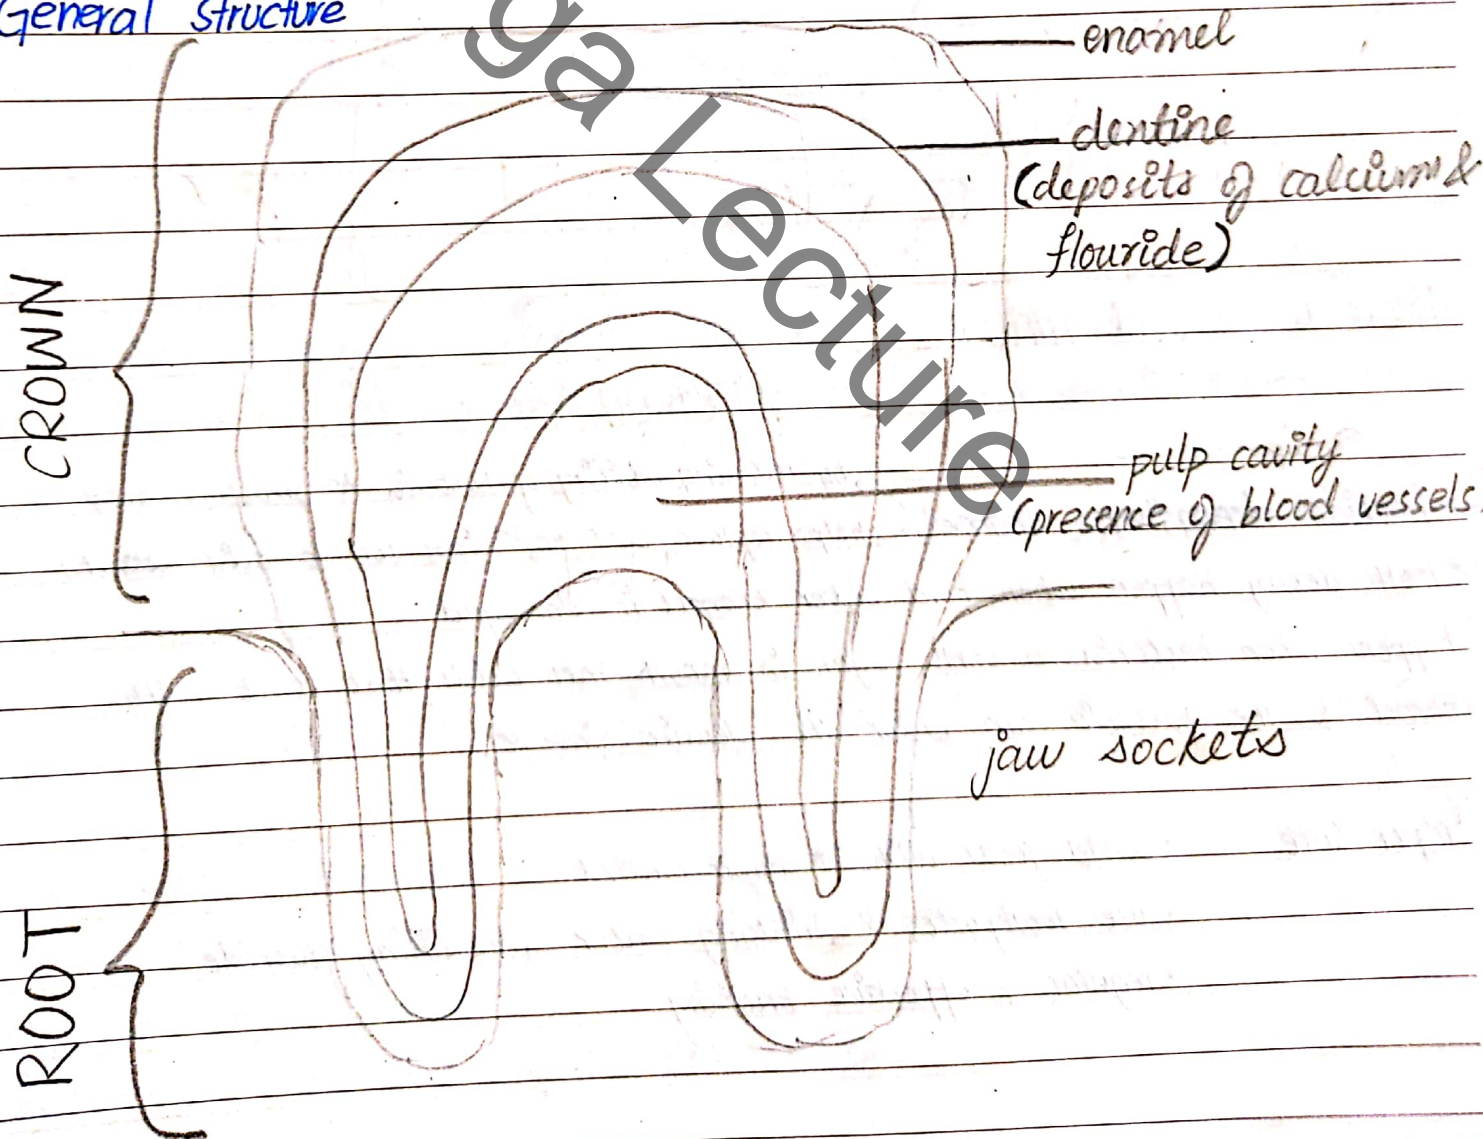 General Structure
enamel
dentine
(deposits of calcium &
flouride)
CROWN
pulp cavity
(presence of blood vessels
jaw sockets
ROOT
ga Lecture